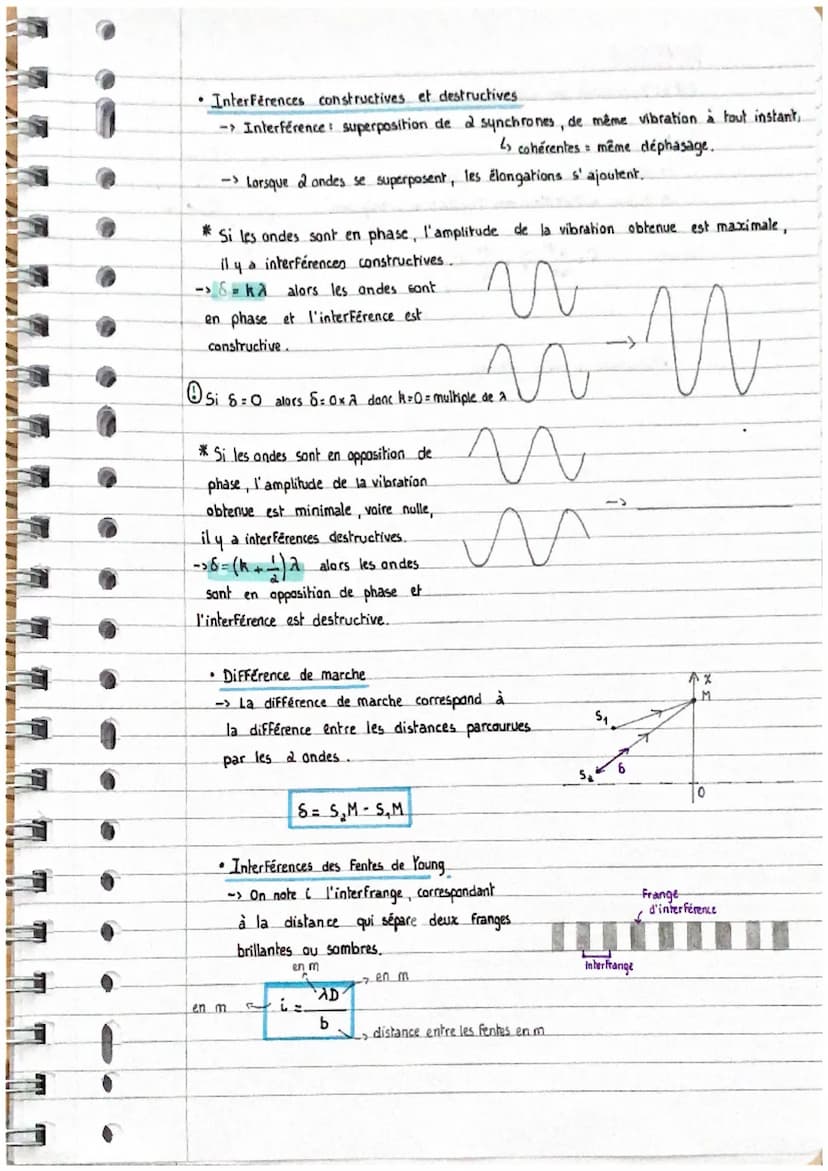 • Interférences constructives et destructives
-> Interférence : superposition de 2 synchrones, de même vibration à tout instant,
↳ cohérentes = même déphasage.
-> Lorsque 2 ondes se superposent, les élongations s'ajoutent.
* Si les ondes sont en phase, l'amplitude de la vibration obtenue est maximale,
il y a interférences constructives.
-> δ = kλ alors les ondes sont
en phase et l'interférence est
constructive.
->
! Si δ = 0 alors δ = 0 x λ donc k = 0 = multiple de λ
* Si les ondes sont en opposition de
phase, l'amplitude de la vibration
obtenue est minimale, voire nulle,
->
il y a interférences destructives.
-> δ = (k + 1/2) λ alors les ondes
sont en opposition de phase et
l'interférence est destructive.
• Différence de marche
-> La différence de marche correspond à
la différence entre les distances parcourues
par les 2 ondes.
x
M
S₁
S₂
δ
O
δ = S₂M - S₁M
• Interférences des Fentes de Young
-> On note i l'interfrange, correspondant
à la distance qui sépare deux franges
brillantes ou sombres.
Frange
d'interférence
Interfrange
en m
en m
en m
i = λD/b
distance entre les fentes en m